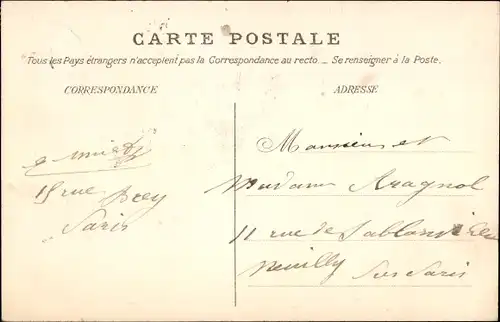 CARTE POSTALE
Tous les Pays étrangers n'acceptent pas la Correspondance au recto. _ Se renseigner à la Poste.
CORRESPONDANCE
15 rue
Paris
ADRESSE
Monsieur et
Madame Aragnol
11 rue de
Neuilly Sur Paris